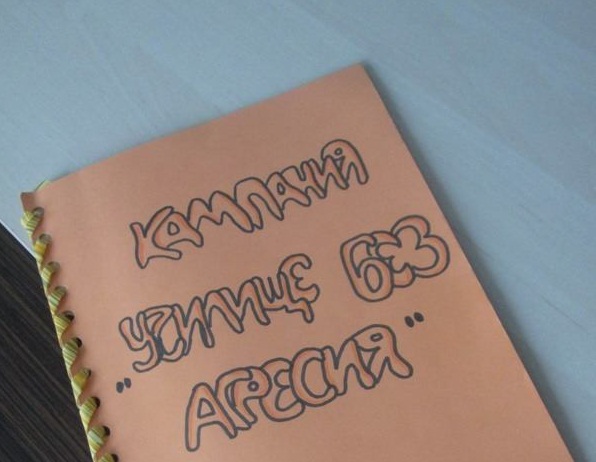 КАМПАНИЯ
"УЧИЛИЩЕ БЕЗ
АГРЕСИЯ"